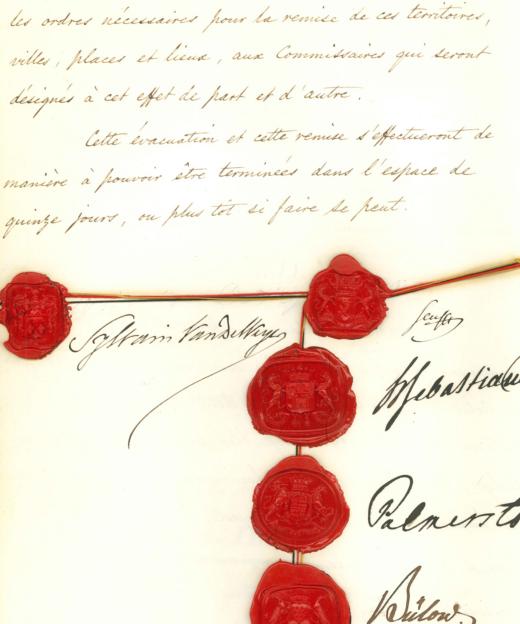 les ordres nécessaires pour la remise de ces territoires,
villes, places et lieux, aux Commissaires qui seront
désignés à cet effet de part et d'autre.
Cette évacuation et cette remise s'effectueront de
manière à pouvoir être terminées dans l'espace de
quinze jours, ou plus tôt si faire se peut.
Sylvain Van de Weyer
Senfft
H Sebastiani
Palmersto
Bülow